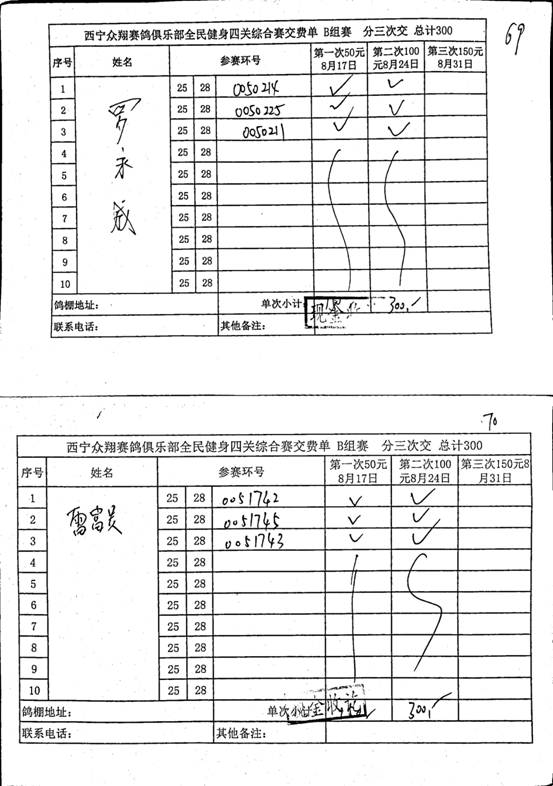 69
西宁众翔赛鸽俱乐部全民健身四关综合赛交费单 B组赛 分三次交 总计300
序号 姓名 参赛环号 第一次50元8月17日 第二次100元8月24日 第三次150元8月31日
1 25 28 0050214 ✓ ✓
2 25 28 0050225 ✓ ✓
3 25 28 0050211 ✓ ✓
罗永成
4 25 28
5 25 28
6 25 28
7 25 28
8 25 28
9 25 28
10 25 28
鸽棚地址: 单次小计: 现金 300,-
联系电话: 其他备注:
70
西宁众翔赛鸽俱乐部全民健身四关综合赛交费单 B组赛 分三次交 总计300
序号 姓名 参赛环号 第一次50元8月17日 第二次100元8月24日 第三次150元8月31日
1 25 28 0051742 ✓ ✓
2 雷富贵 25 28 0051745 ✓ ✓
3 25 28 0051743 ✓ ✓
4 25 28
5 25 28
6 25 28
7 25 28
8 25 28
9 25 28
10 25 28
鸽棚地址: 单次小计 金收讫 300,-
联系电话: 其他备注: